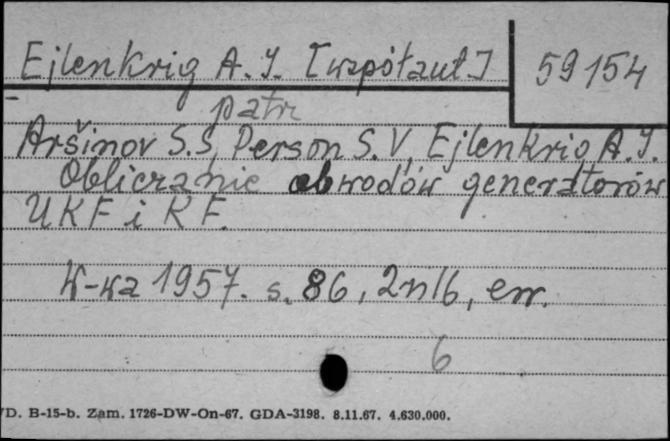 Ejlenkrig A. J. [współaut.]
59154
patr
Aršinov S. S, Person S. V, Ejlenkrig A. J.
Obliczanie obwodów generatorów
UKF i KF.
W-wa 1957. s. 86, 2nlb, err.
6
D. B-15-b. Zam. 1726-DW-On-67. GDA-3198. 8.11.67. 4.630.000.